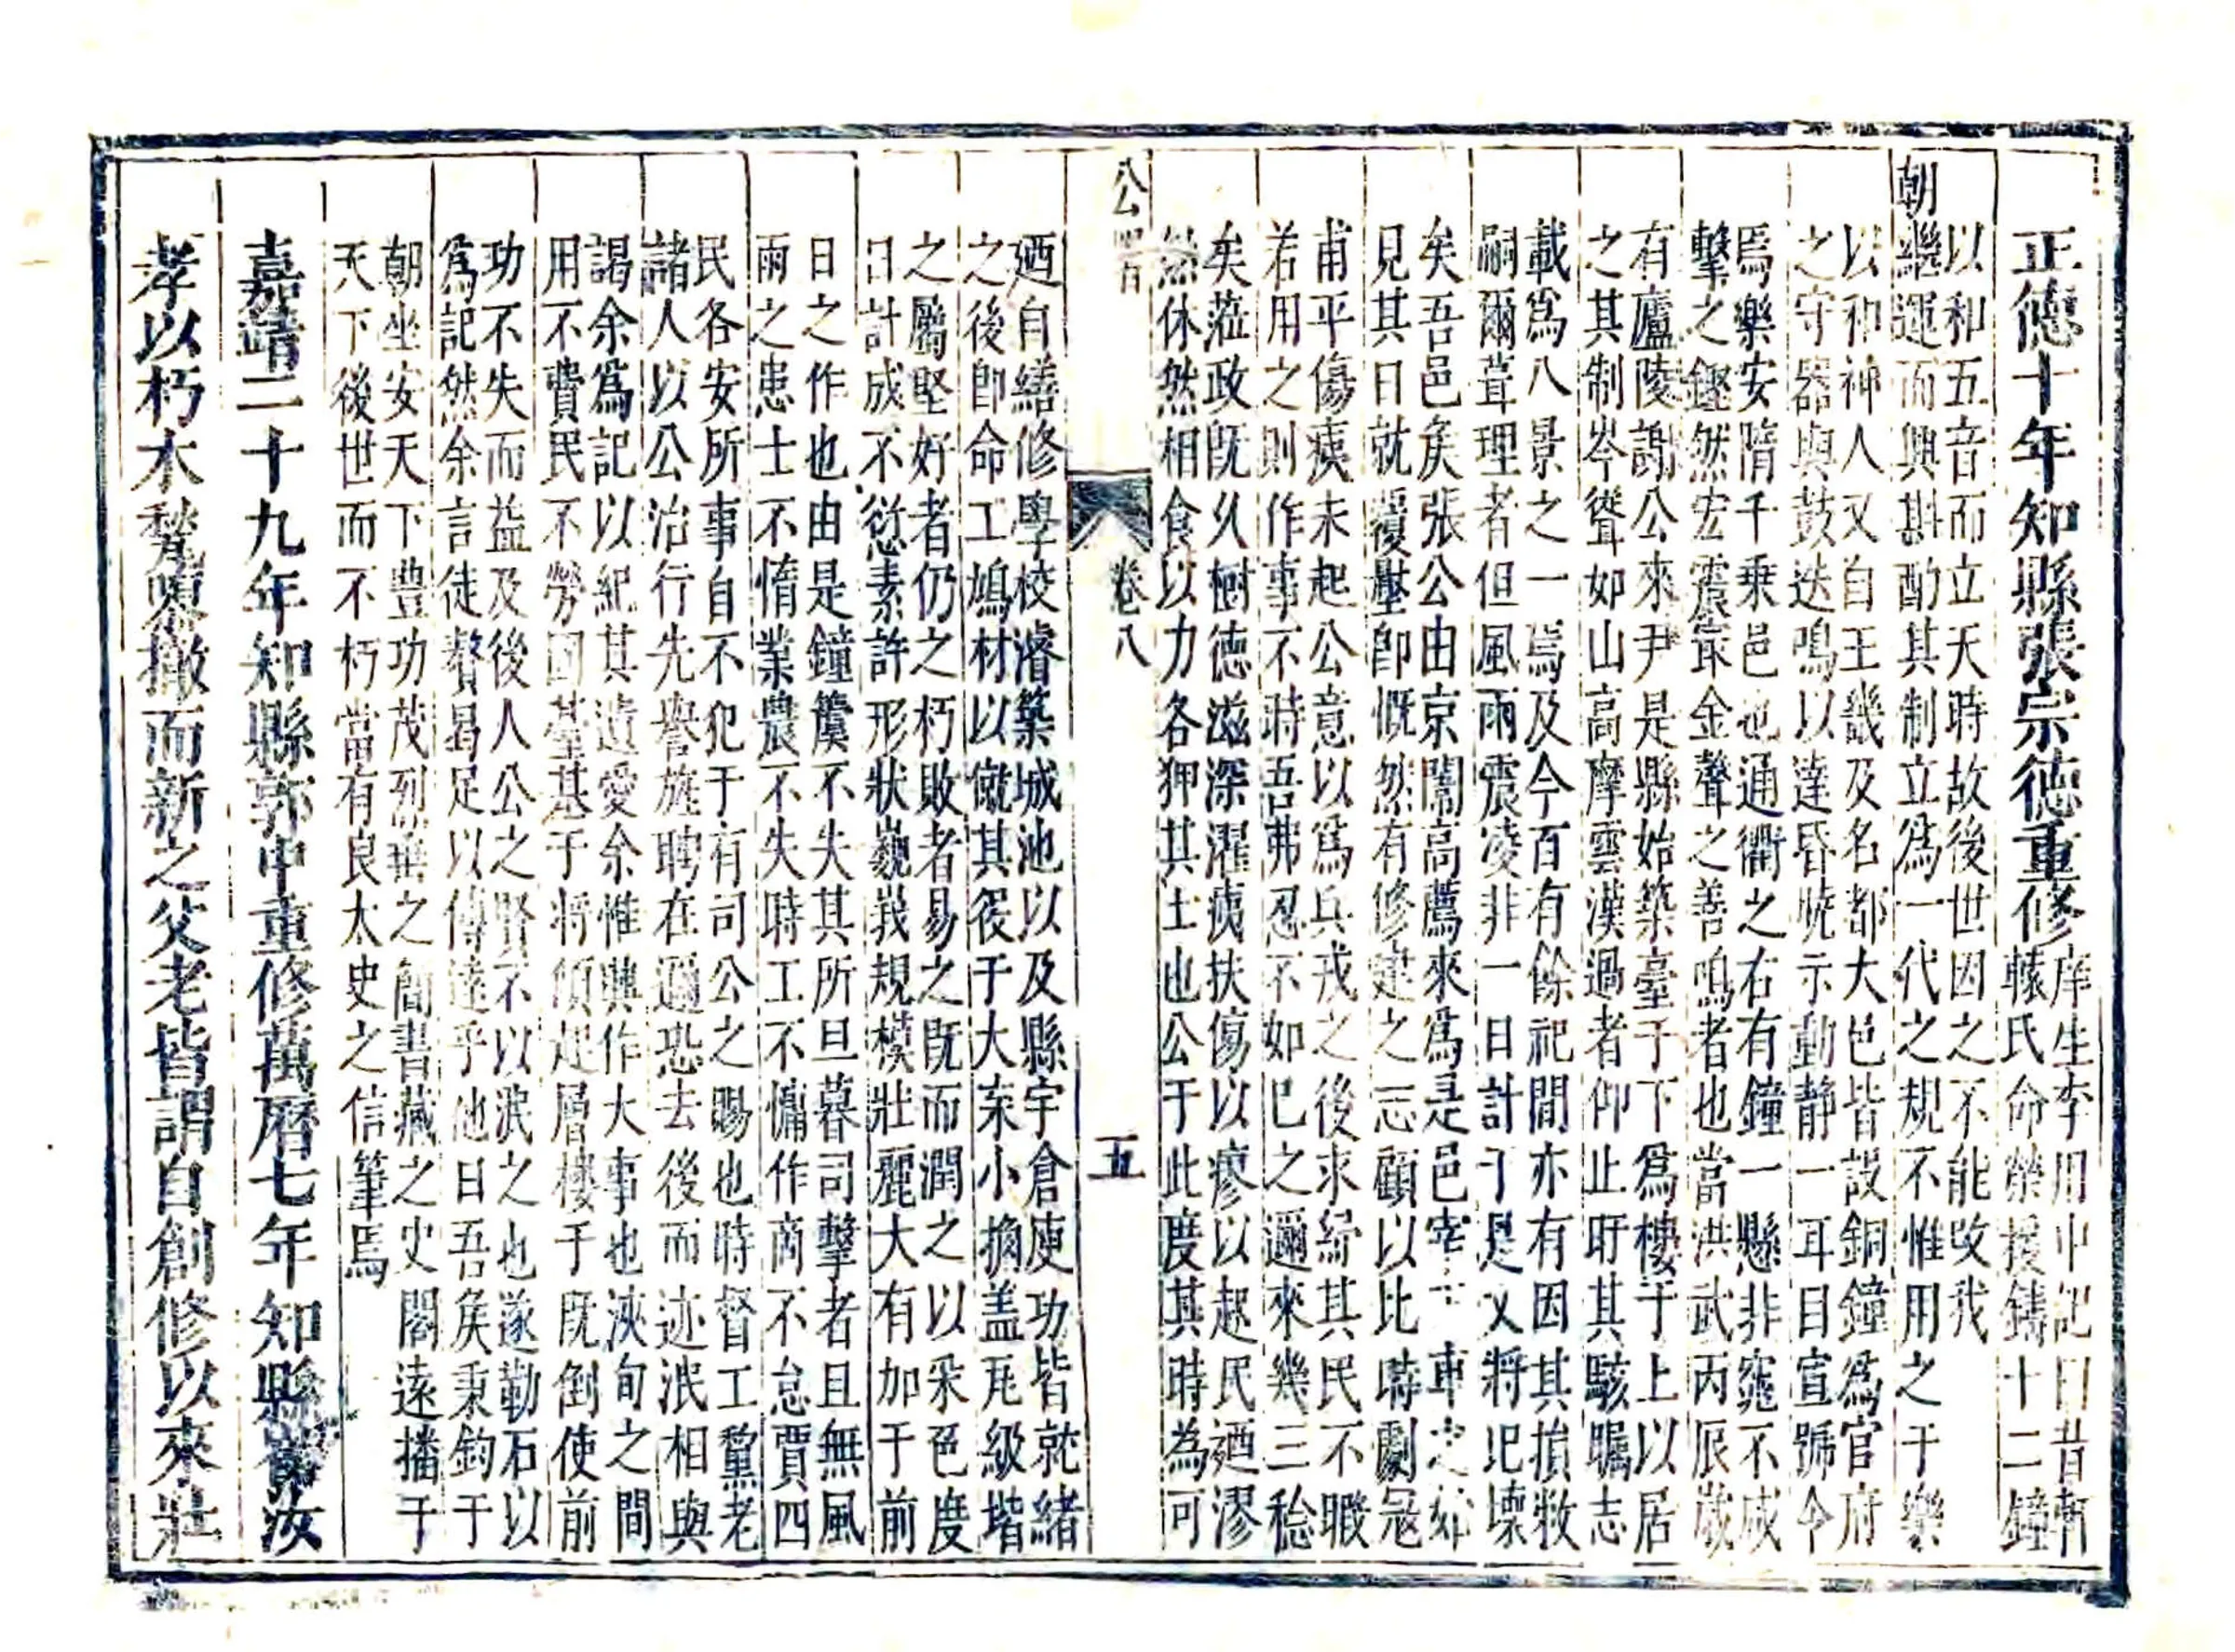 正德十年知縣張宗德重修庠生李用中記曰昔軒
轅氏命榮援鑄十二鐘
以和五音而立天時故後世因之不能改我
朝繼運而興斟酌其制立爲一代之規不惟用之于樂
以和神人又自王畿及名都大邑皆設銅鐘爲官府
之守器與鼓迭鳴以達昏曉示動静一耳目宣號令
焉樂安隋千乗邑也通衢之右有鐘一懸非窕不咸
擊之鏗然宏震寔金聲之善鳴者也當洪武丙辰歲
有廬陵謝公來尹是縣始築臺于下爲樓于上以居
之其制岑聳如山高摩雲漢過者仰止盱其駭矚志
載爲八景之一焉及今百有餘祀間亦有因其損敝
嗣爾葺理者但風雨震凌非一日計于是又將圮壞
矣吾邑矦張公由京闈高薦來爲是邑宰下車之初
見其日就覆壓卽慨然有修建之志顧以比時劇冦
甫平傷痍未起公意以爲兵戎之後求紓其民不暇
若用之則作事不時吾弗忍不如已之邇來幾三稔
矣蒞政旣久樹德滋深濯痍扶傷以瘳以起民廼漻
然休然相食以力各狎其土也公于此度其時為可
公署 卷八 五
廼自繕修學校濬築城池以及縣宇倉庾功皆就緒
之後卽命工鳩材以僦其役于大宋小桷盖瓦級堦
之屬堅好者仍之朽敗者易之旣而潤之以采色度
日計成不愆素許形狀巍峩規模壯麗大有加于前
日之作也由是鐘簴不失其所旦暮司擊者且無風
雨之患士不惰業農不失時工不慵作商不怠賈四
民各安所事自不犯于有司公之賜也時督工黨老
諸人以公治行先譽旌聘在邇恐去後而迹泯相與
謁余爲記以紀其遺愛余惟興作大事也浹旬之間
用不費民不勞因臺基于將傾起層樓于旣倒使前
功不失而益及後人公之賢不以泯之也遂勒石以
爲記然余言徒贅曷足以傳逹乎他日吾矦秉鈞于
朝坐安天下豊功茂烈垂之簡書藏之史閣遠播于
天下後世而不朽當有良太史之信筆焉
嘉靖二十九年知縣郭中重修萬曆七年知縣汝
孝以朽木甃撤而新之父老皆謂自創修以來壯